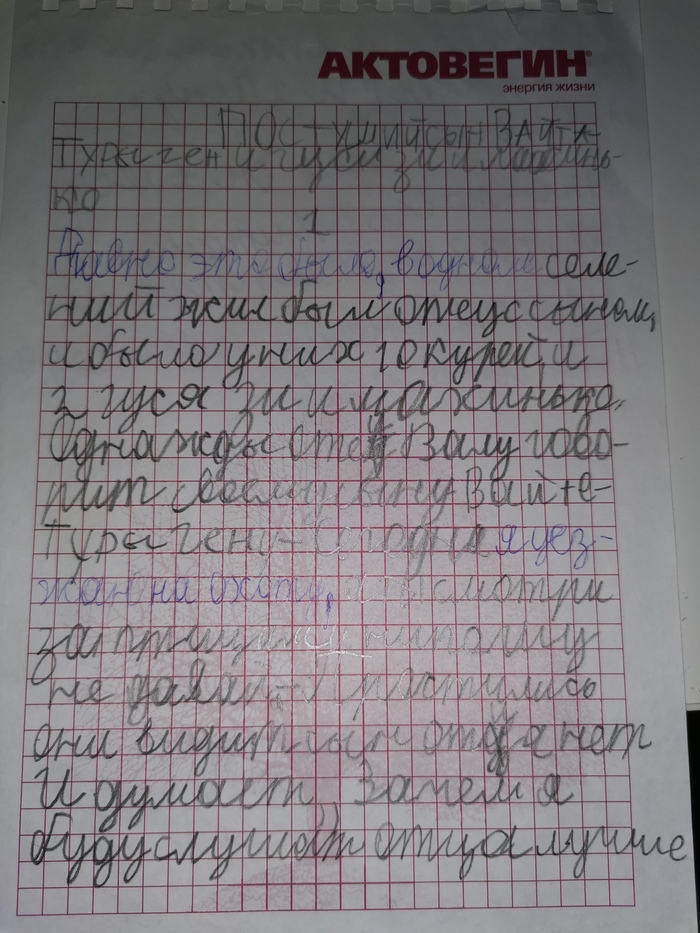 АКТОВЕГИН®
энергия жизни
Послушный сын Вайте-
Турыген и гуси зи и махинь-
ко
1
Давно это было, в одном селе-
ний жил был отец с сыном,
и было у них 10 курей, и
2 гуся зи и махинько.
Однажды отец Валу гово-
рит своему сыну Вайте-
Турыгену – Сегодня я уез-
жаю на охоту, смотри
за птицами никому
не давай. – Проснулись
они видит сын отца нет
И думает, Зачем я
буду слушат отца лучше